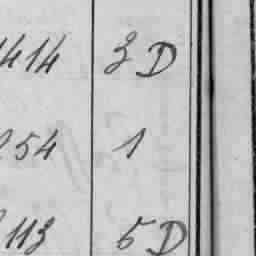 1414 3 D
254 1
113 5 D